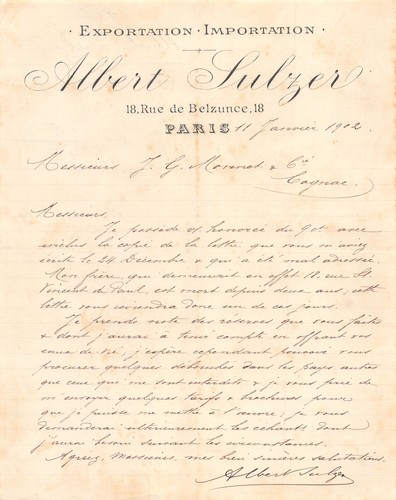 · EXPORTATION · IMPORTATION ·
Albert Sulzer
18, Rue de Belzunce, 18
PARIS 11 Janvier 1902.
Messieurs J. G. Monnet & Cie
Cognac.
Messieurs,
Je possède honorée du 9 ct avec
inclus la copie de la lettre que vous m'aviez
écrite le 24 Décembre & qui a été mal adressée.
Mon frère, qui demeurait en effet 18 rue St
Vincent de Paul est mort depuis deux ans; cette
lettre vous reviendra donc un de ces jours.
Je prends note des réserves que vous faites
& dont j'aurai à tenir compte en offrant vos
eaux de vie; j'espère cependant pouvoir vous
procurer quelques débouchés dans les pays autres
que ceux qui me sont interdits & je vous prie de
m'envoyer quelques tarifs & brochures pour
que je puisse me mettre à l'œuvre; je vous
demanderai ultérieurement les échants dont
j'aurai besoin suivant les circonstances.
Agréez, Messieurs, mes bien sincères salutations.
Albert Sulzer